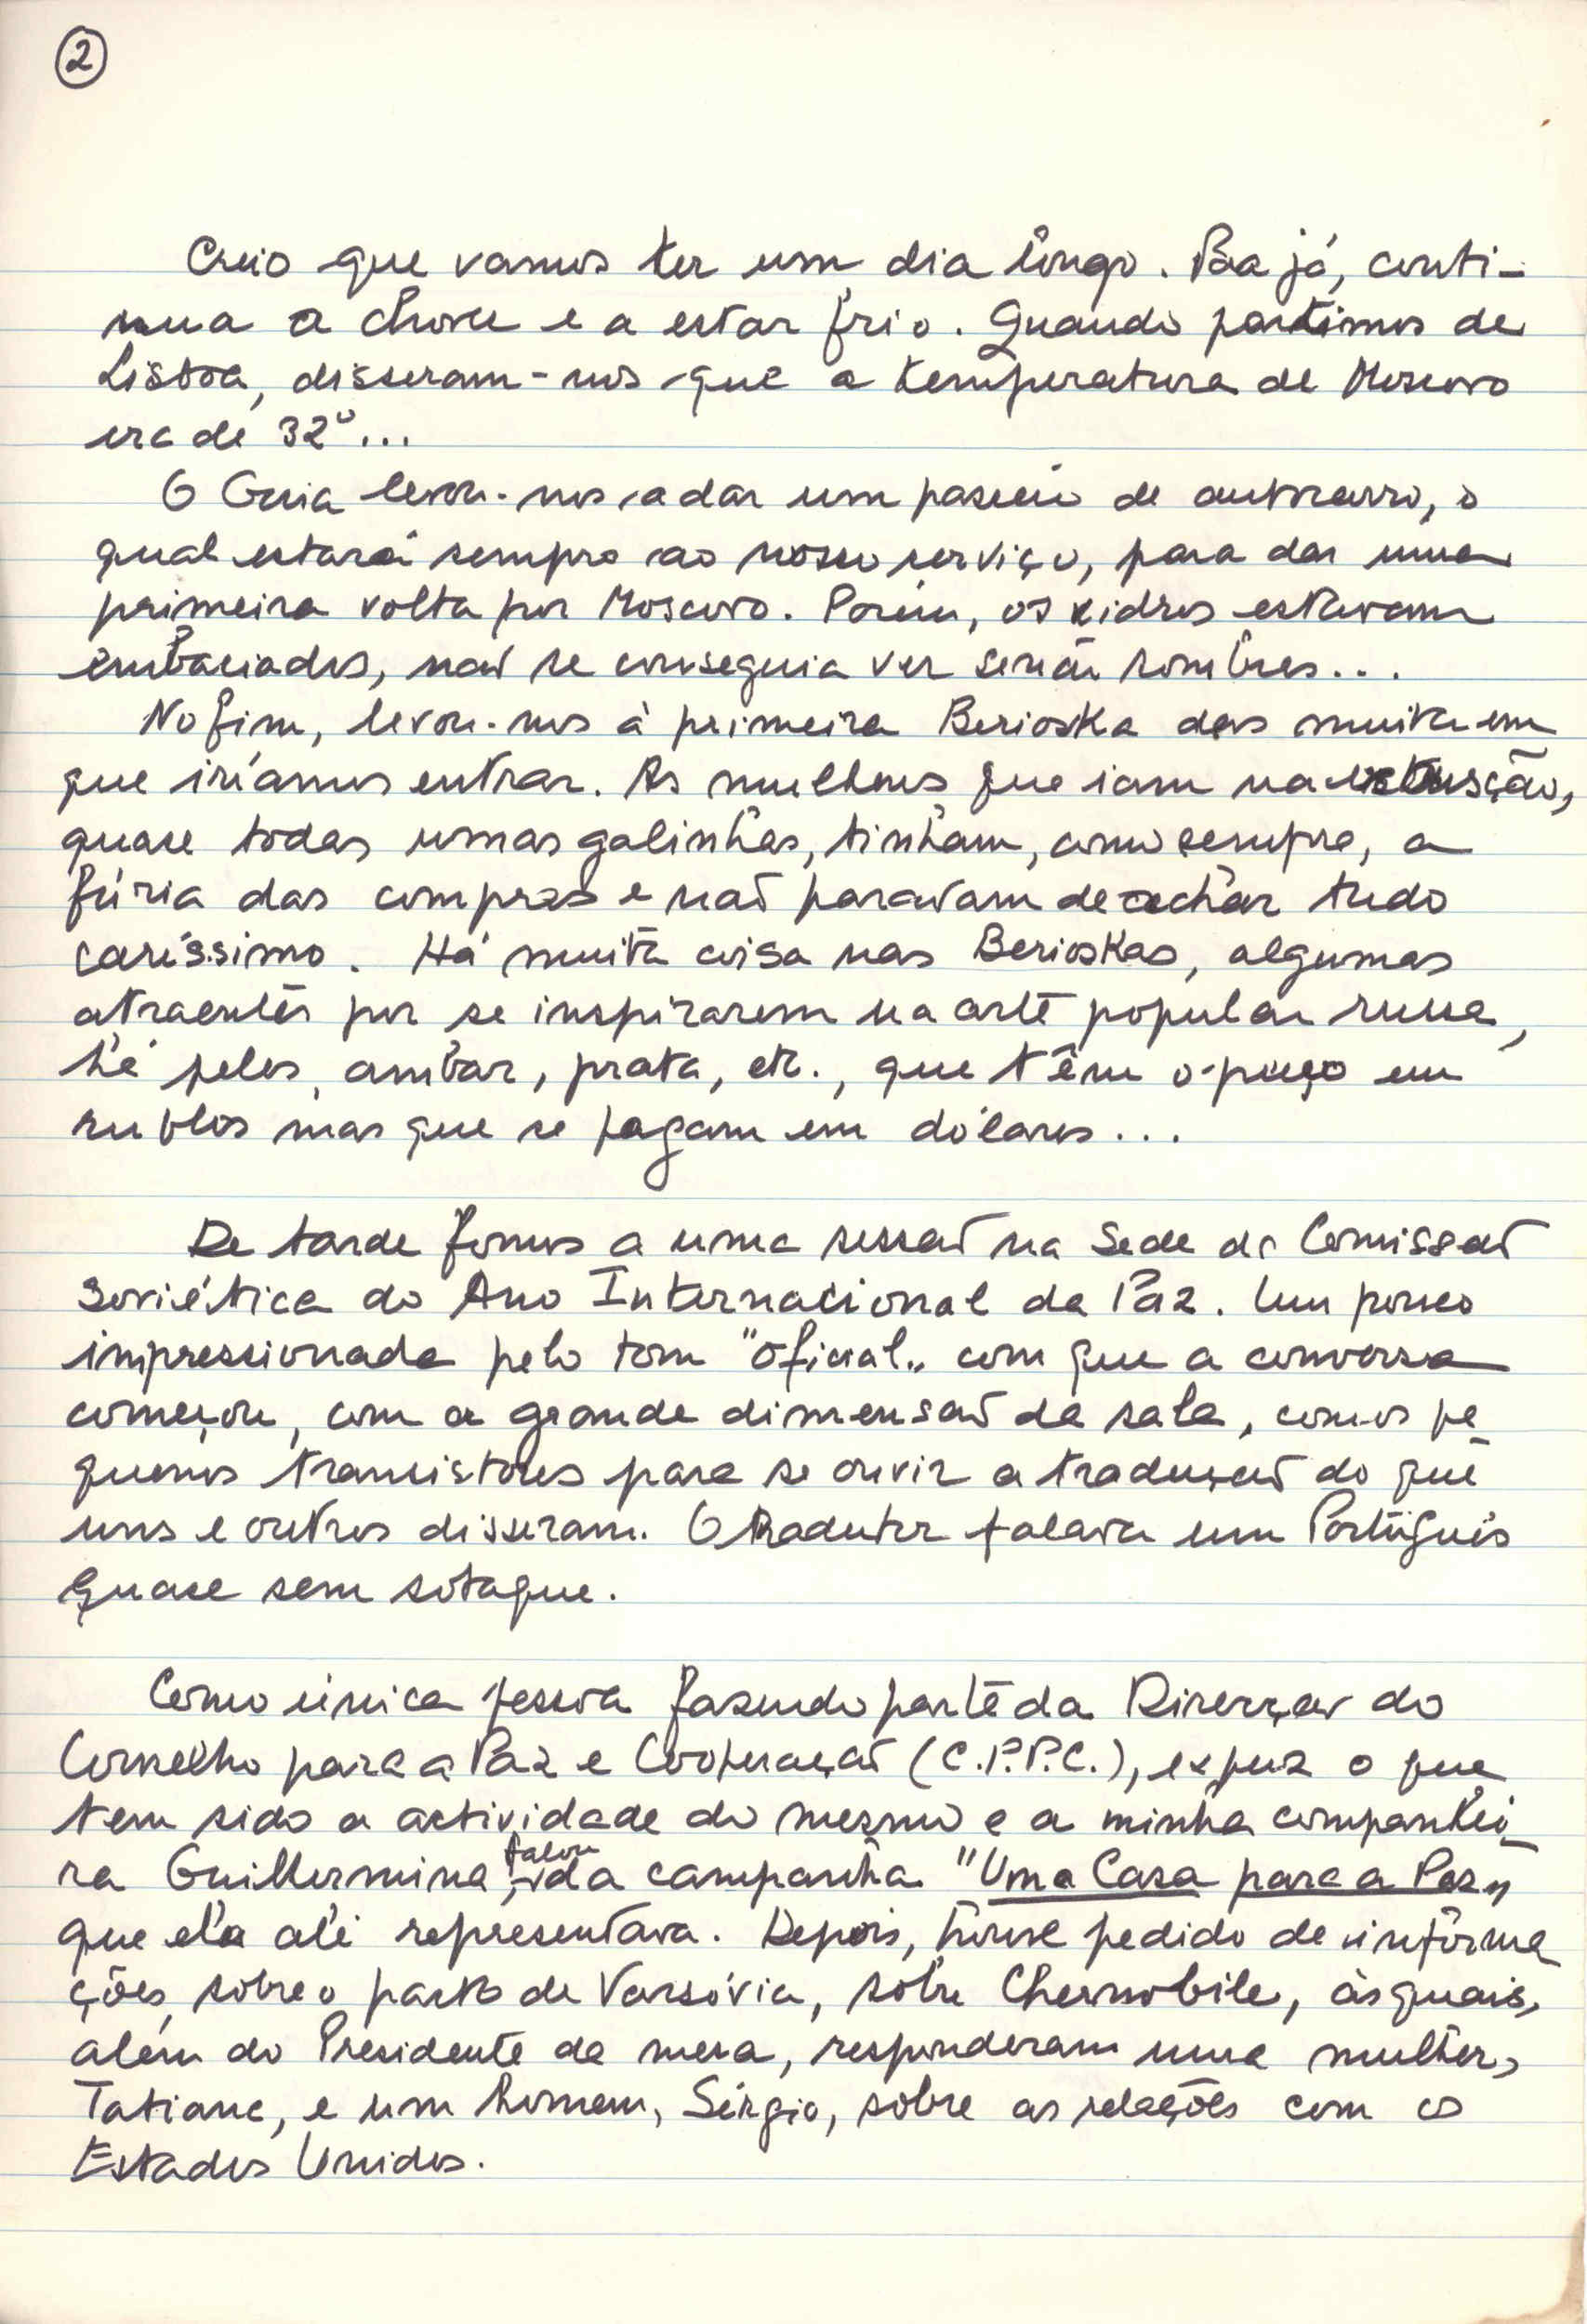 2
Creio que vamos ter um dia longo. Para já, conti-
nua a chover e a estar frio. Quando partimos de
Lisboa, disseram-nos que a temperatura de Moscovo
era de 32º...
O Guia levou-nos a dar um passeio de autocarro, o
qual estará sempre ao nosso serviço, para dar uma
primeira volta por Moscovo. Porém, os vidros estavam
embaciados, não se conseguia ver senão sombras...
No fim, levou-nos à primeira Berioska das muitas em
que iríamos entrar. As mulheres que iam na excursão,
quase todas umas galinhas, tinham, como sempre, a
fúria das compras e não paravam de achar tudo
caríssimo. Há muita coisa nas Berioskas, algumas
atraentes por se inspirarem na arte popular russa,
há peles, ambar, prata, etc., que têm o preço em
rublos mas que se pagam em dólares...
De tarde fomos a uma sessão na Sede da Comissão
Soviética do Ano Internacional da Paz. Um pouco
impressionada pelo tom "oficial" com que a conversa
começou, com a grande dimensão da sala, com os pe
quenos transistores para se ouvir a tradução do que
uns e outros disseram. O tradutor falava um Português
quase sem sotaque.
Como única pessoa fazendo parte da Direcção do
Conselho para a Paz e Cooperação (C.P.P.C.), expuz o que
tem sido a actividade do mesmo e a minha companhei
ra Guilhermina, falou da campanha "Uma Casa para a Paz"
que ela ali representava. Depois, houve pedido de informa
ções, sobre o pacto de Varsóvia, sobre Chernobile, às quais,
além do Presidente da mesa, responderam uma mulher,
Tatiana, e um homem, Sérgio, sobre as relações com os
Estados Unidos.